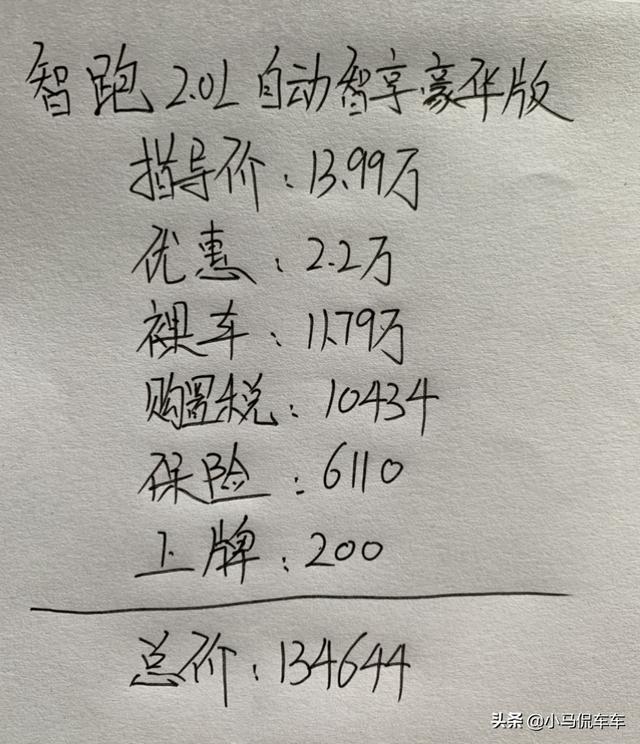 智跑2.0L自动智享豪华版
指导价：13.99万
优惠：2.2万
裸车：11.79万
购置税：10434
保险：6110
上牌：200
总价：134644
头条 @小马侃车车